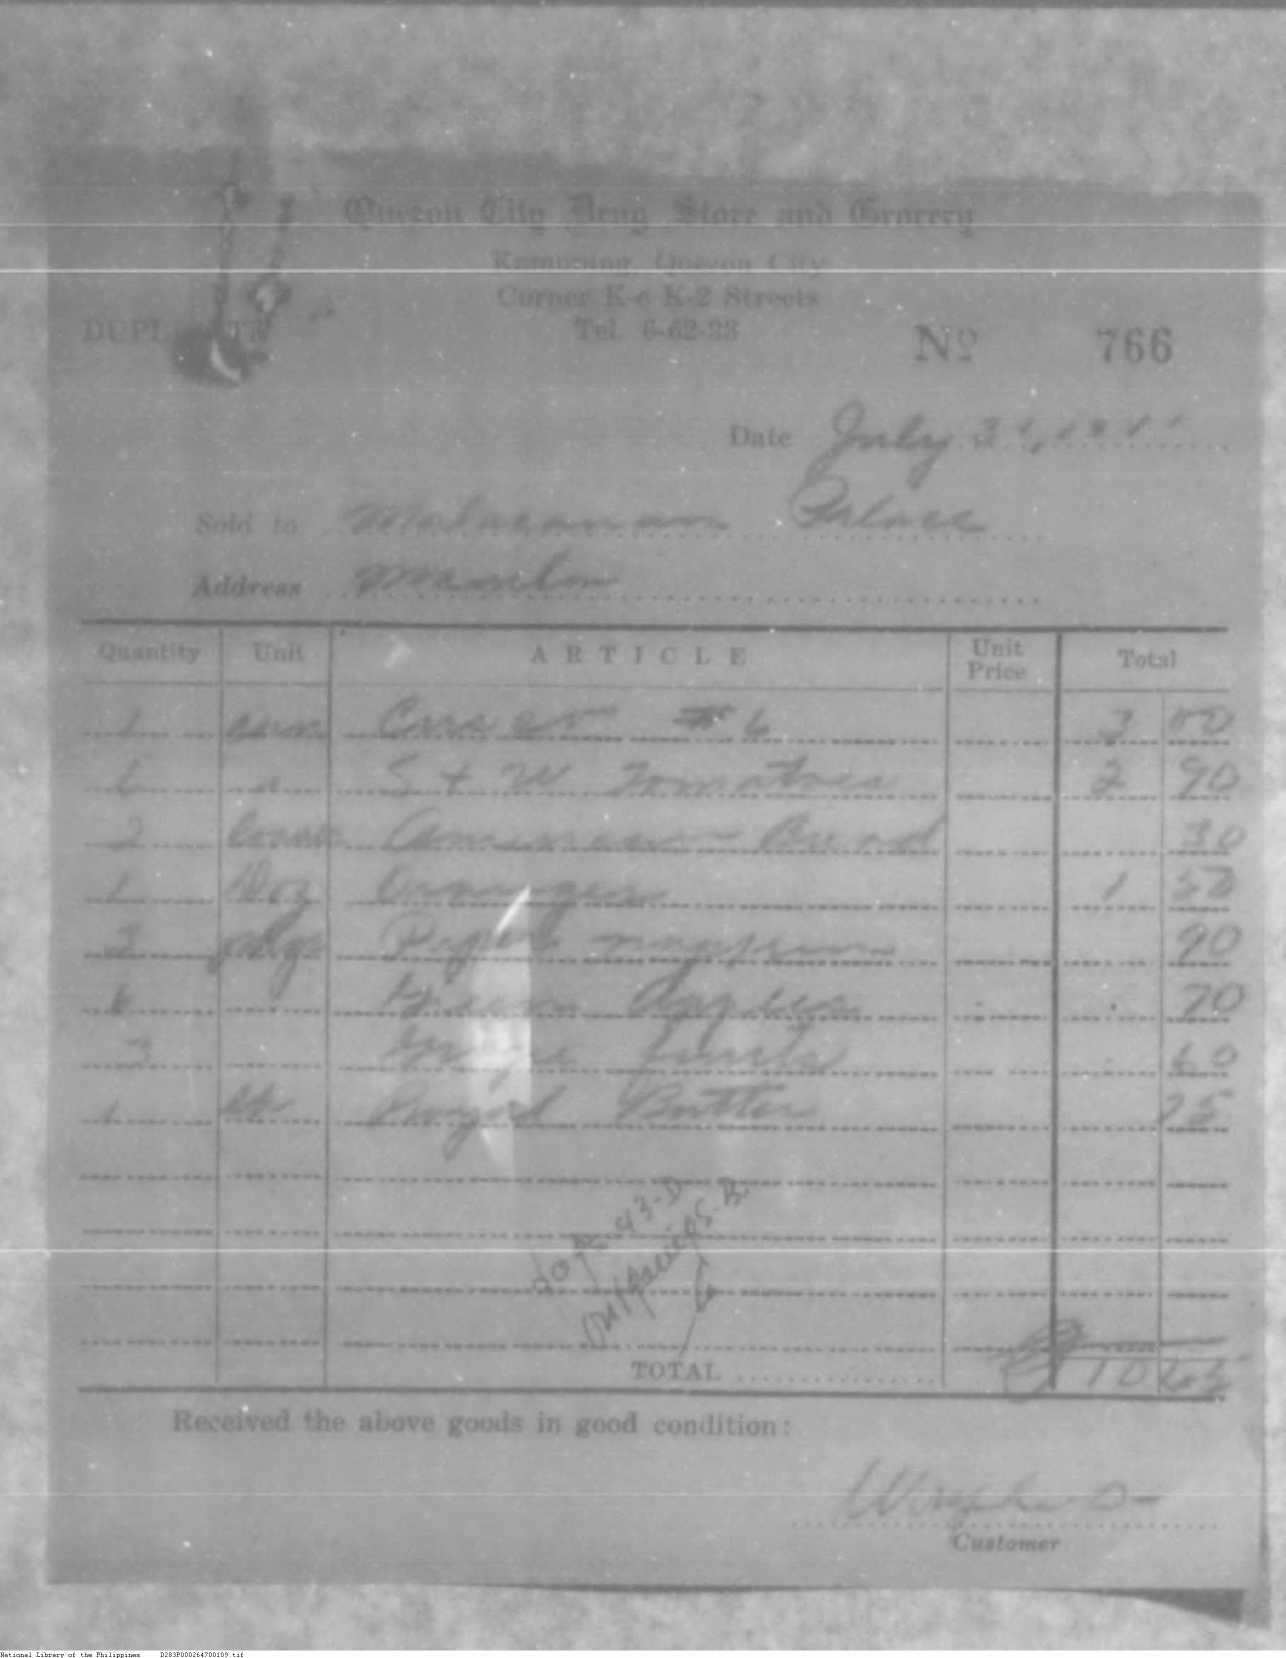 Quezon City Drug Store and Grocery
Kamuning, Quezon City
Corner K-c K-2 Streets
Tel. 6-62-33
DUPL TE
Nº 766
Date July 31, 19
Sold to Malacanan Palace
Address Manila
Quantity Unit ARTICLE Unit Price Total
1 #6 3 00
6 S + W Tomatoes 2 90
2 American Bread 30
1 Doz Oranges 1 50
2 pkgs 90
6 Green Apples 70
3 Grape fruits 60
1 Royal Butter 75
TOTAL 10 65
Received the above goods in good condition:
Customer
National Library of the Philippines D283P000264700109.tif